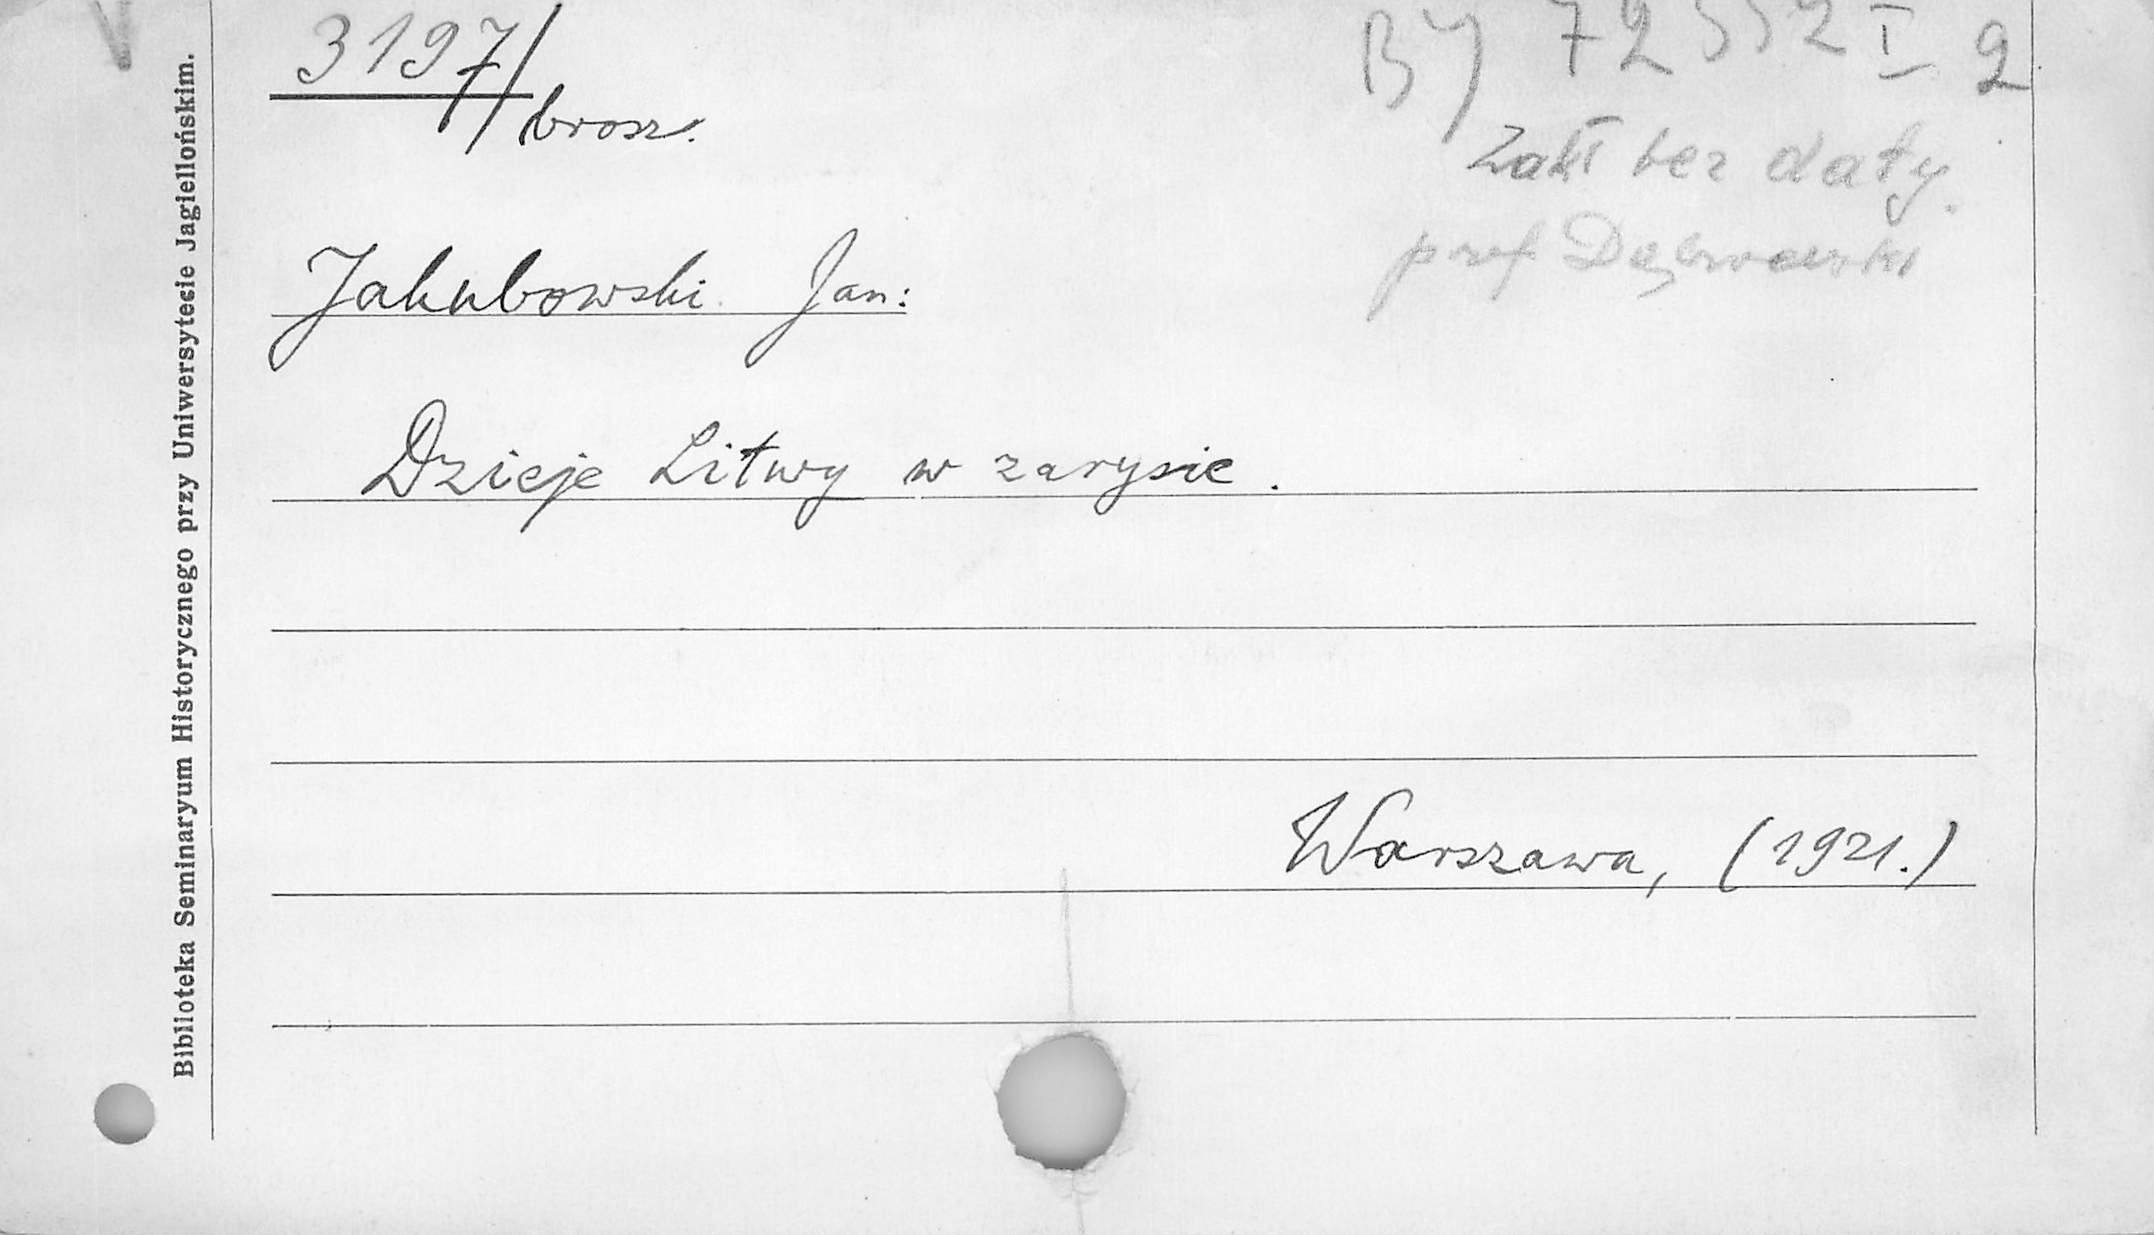 3197/brosz.
BJ 72552 I 2
bez daty.
prof Dąbrowski
Jakubowski Jan:
Dzieje Litwy w zarysie.
Warszawa, (1921.)
Biblioteka Seminaryum Historycznego przy Uniwersytecie Jagiellońskim.